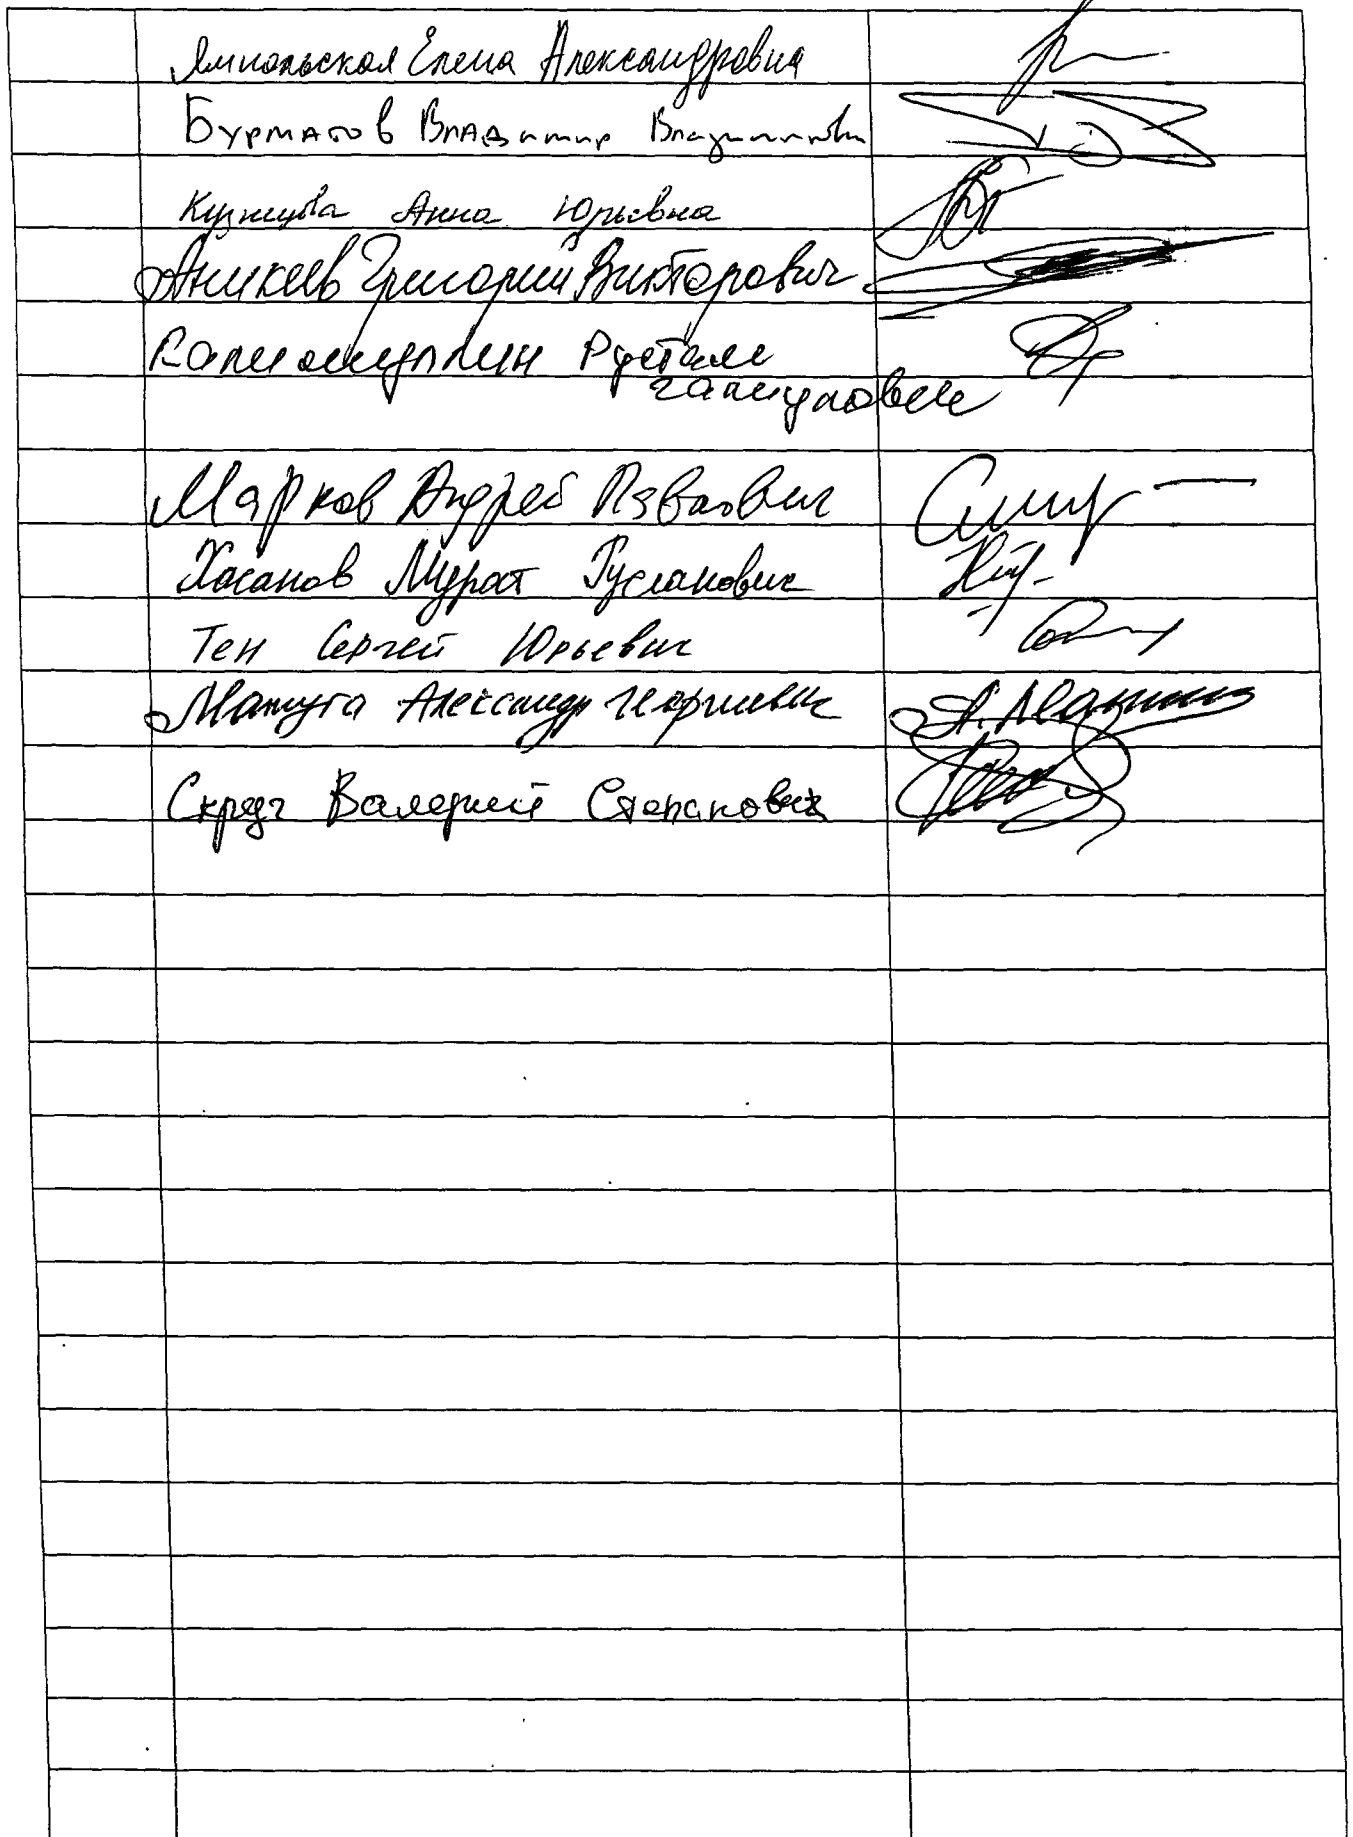 Ямпольская Елена Александровна
Бурматов Владимир Владимирович
Кузнецова Анна Юрьевна
Аникеев Григорий Викторович
Рустам
Марков Андрей Павлович
Хасанов Мурат Русланович
Тен Сергей Юрьевич
Мажуга Александр Георгиевич
А. Мажуга
Скруг Валерий Степанович